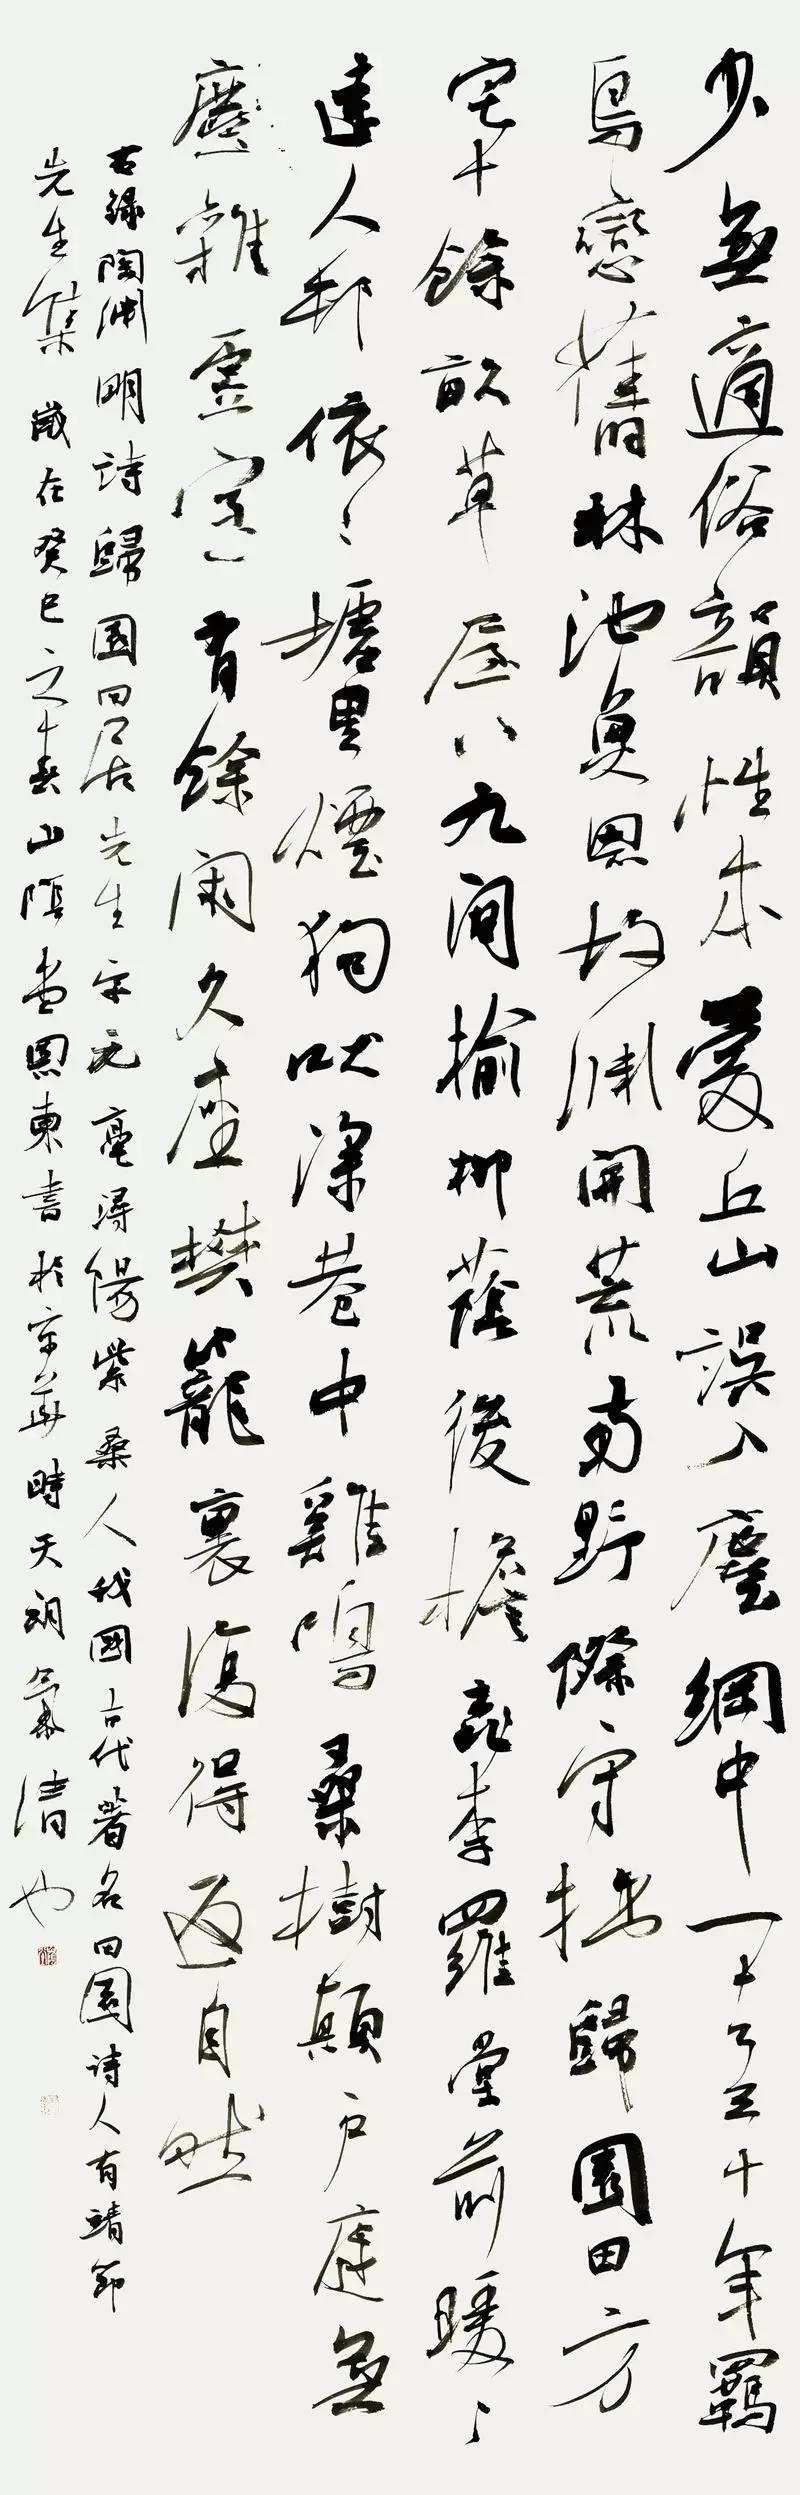 少無適俗韻性本愛丘山誤入塵網中一去三十年羈
鳥戀舊林池魚思故淵開荒南野際守拙歸園田方
宅十餘畝草屋八九間榆柳蔭後檐桃李羅堂前曖〻
遠人邨依〻墟里煙狗吠深巷中雞鳴桑樹顛戶庭無
塵雜虛室有餘閑久在樊籠裏復得返自然
右錄陶淵明詩歸園田居先生字元亮潯陽柴桑人我國古代著名田園詩人有靖節
先生集歲在癸巳之春山陰孟恩東書於京華時天朗氣清也